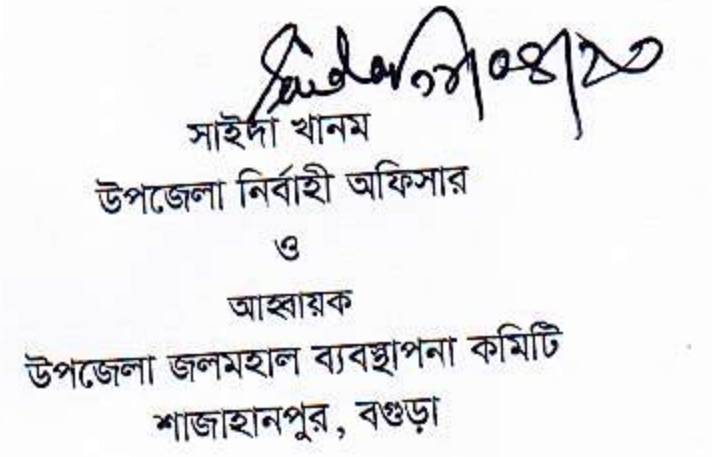 সাইদা খানম
উপজেলা নির্বাহী অফিসার
ও
আহ্বায়ক
উপজেলা জলমহাল ব্যবস্থাপনা কমিটি
শাজাহানপুর, বগুড়া